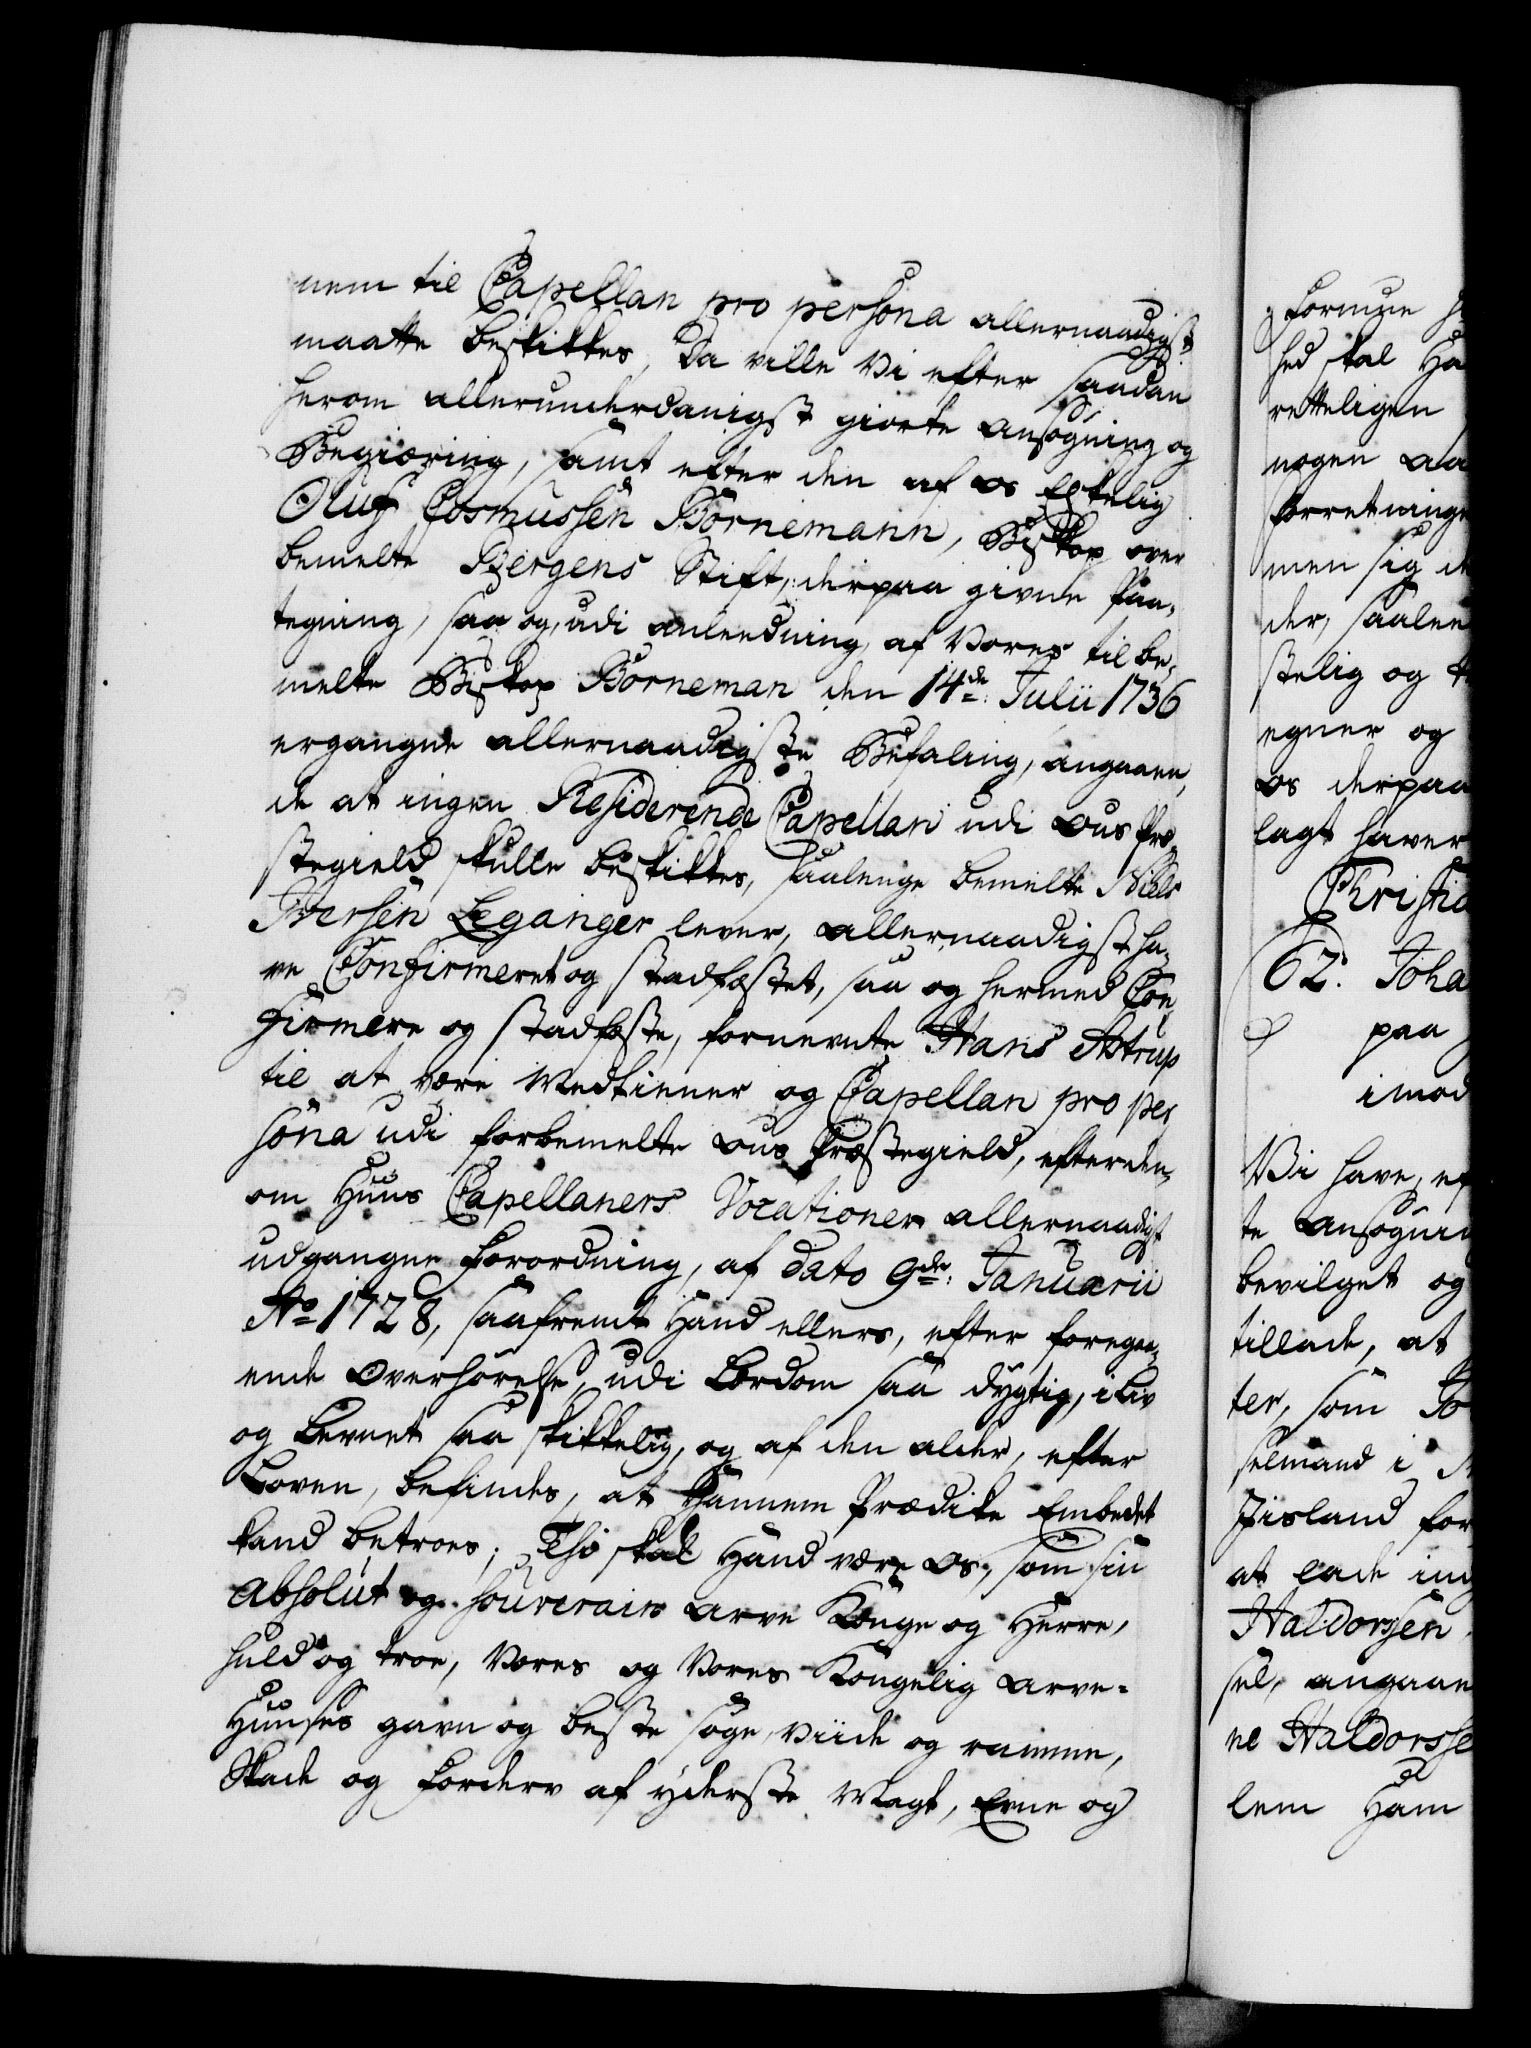 nem til Capellan pro persona allernaadigst
maatte beskikkes, Da ville Vi efter saadan
herom allerunderdanigst giorte ansøgning og
Begiæring, samt efter den af os Elskelig
Oluf Cosmussen Bornemann, Biskop over
bemelte Bergens Stift, derpaa givne Paa-
tegning, saa og, udi anleedning, af Vores til be-
melte Biskop Borneman den 14de Julii 1736
ergangne allernaadigste Befaling, angaaen-
de at ingen Residerende Capellan udi Ous Præ-
stegield skulle beskikkes, saalenge bemelte Niels
Iversen Leganger lever, allernaadigst ha-
ve Confirmeret og stadfæstet, saa og hermed Con-
firmere og stadfæste, fornevnte Hans Astrup
til at være Medtienner og Capellan pro per-
sona udi forbemelte Ous Præstegield, efter den,
om Huus Capellaners Vocationer allernaadigst
udgangne Forordning, af dato 9de Januarii
Ao 1728, saafremt Hand ellers, efter foregaa-
ende Overhørelse, udi Lærdom saa dygtig, i Liv
og Levnet saa skikkelig, og af den alder, efter
Loven, befindes, at Hannem Prædike Embedet
kand betroes; Thi skal Hand være os, som sin
absolut og souverain Arve Konge og Herre,
huld og troe, Vores og Vores Kongelig Arve-
Huuses gavn og beste søge, Viide og ramme,
Skade og Forderv af yderste Magt, Evne og
Formue
hed skal Ha
retteligen
nogen
forretninge
men sig
der, saalee
stelig og
egner og
os derpaa
lagt haver
Christia
62. Joha
paa
imod
Vi have, ef
te ansøgnin
bevilget og
tillade, at
ter, som Jo
selmand i
Iisland for
at lade ind
Haldorssen
sel, angaaen
ne Haldorsse
lem Ham